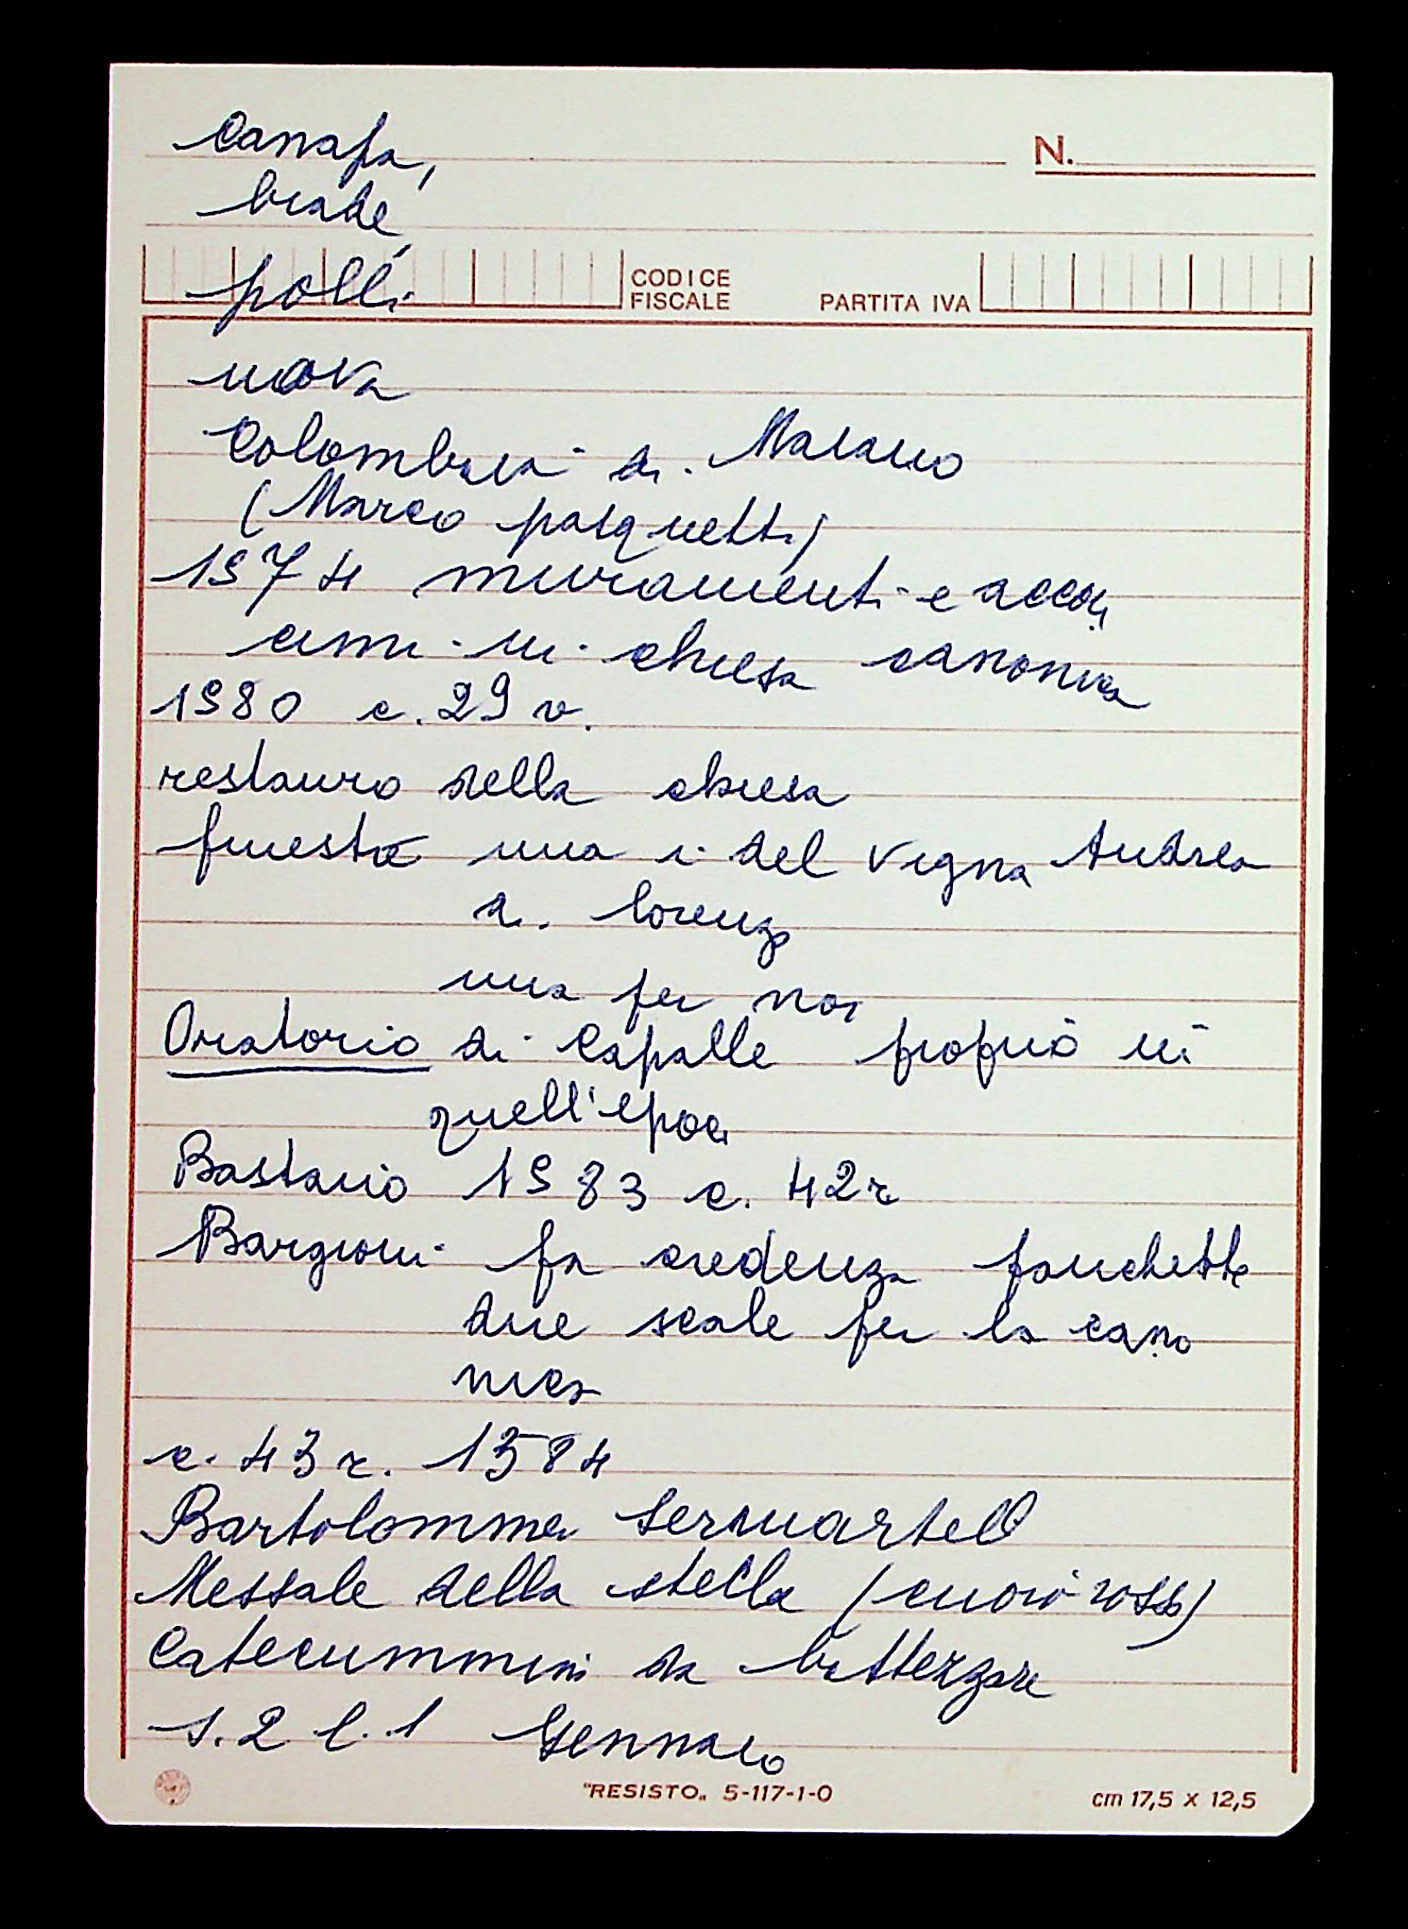 canapa,
N.
biade,
polli
CODICE
FISCALE
PARTITA IVA
uova
Colombaia di Marano
(Marco pasquetti)
1574 muramenti e accon
cimi in chiesa canonica
1580 c. 29 v.
restauro della chiesa
finestre una i del Vigna Andrea
di Lorenzo
una per noi
Oratorio di Capalle proprio in
quell'epoca
Bastano 1583 c. 42 r
Bargioni fa credenza panchette
due scale per la cano
nica
c. 43 r. 1584
Bartolommeo Sermartelli
Messale della stella (cuoio rosso)
Catecummini da battezzare
s. 2 l. 1 Gennaio
"RESISTO„ 5-117-1-0
cm 17,5 x 12,5